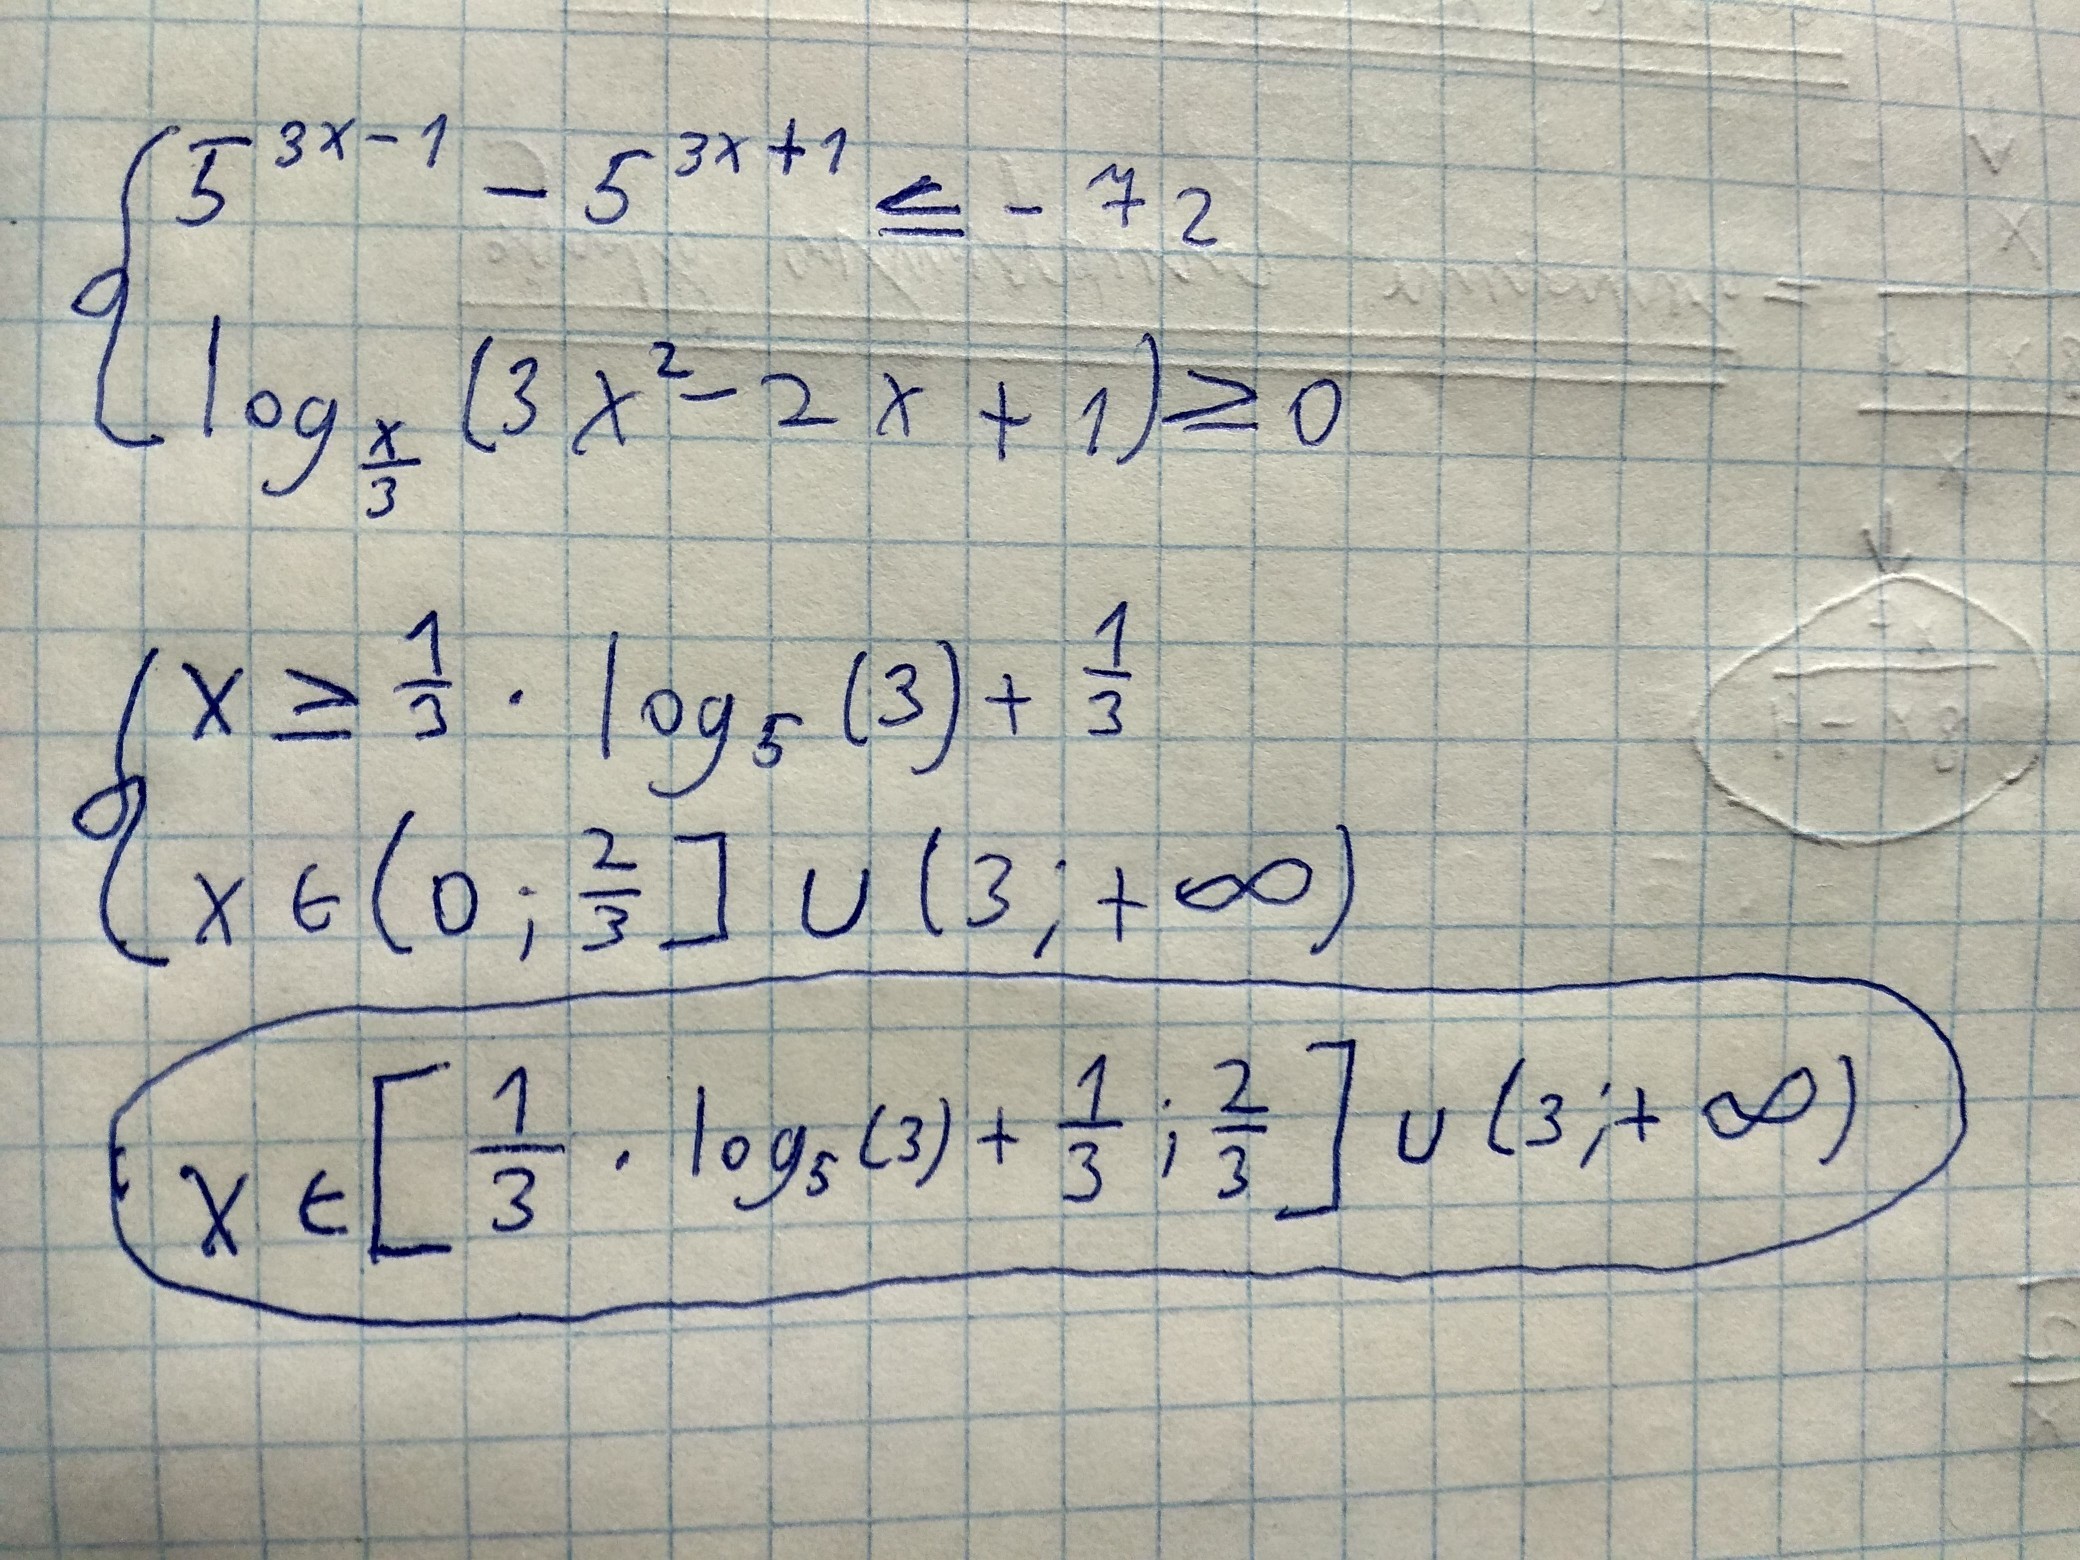 5^{3x-1} - 5^{3x+1} ≤ -72
log_{x/3} (3x² - 2x + 1) ≥ 0
x ≥ 1/3 · log_5 (3) + 1/3
x ∈ (0; 2/3] ∪ (3; +∞)
x ∈ [1/3 · log_5 (3) + 1/3; 2/3] ∪ (3; +∞)